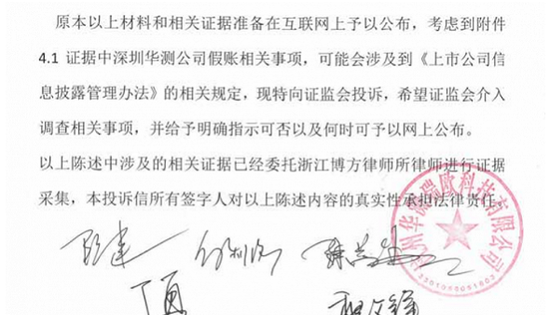 原本以上材料和相关证据准备在互联网上予以公布，考虑到附件
4.1 证据中深圳华测公司假账相关事项，可能会涉及到《上市公司信
息披露管理办法》的相关规定，现特向证监会投诉，希望证监会介入
调查相关事项，并给予明确指示可否以及何时可予以网上公布。
以上陈述中涉及的相关证据已经委托浙江博方律师所律师进行证据
采集，本投诉信所有签字人对以上陈述内容的真实性承担法律责任。
州华测瑞欧科技有限公司